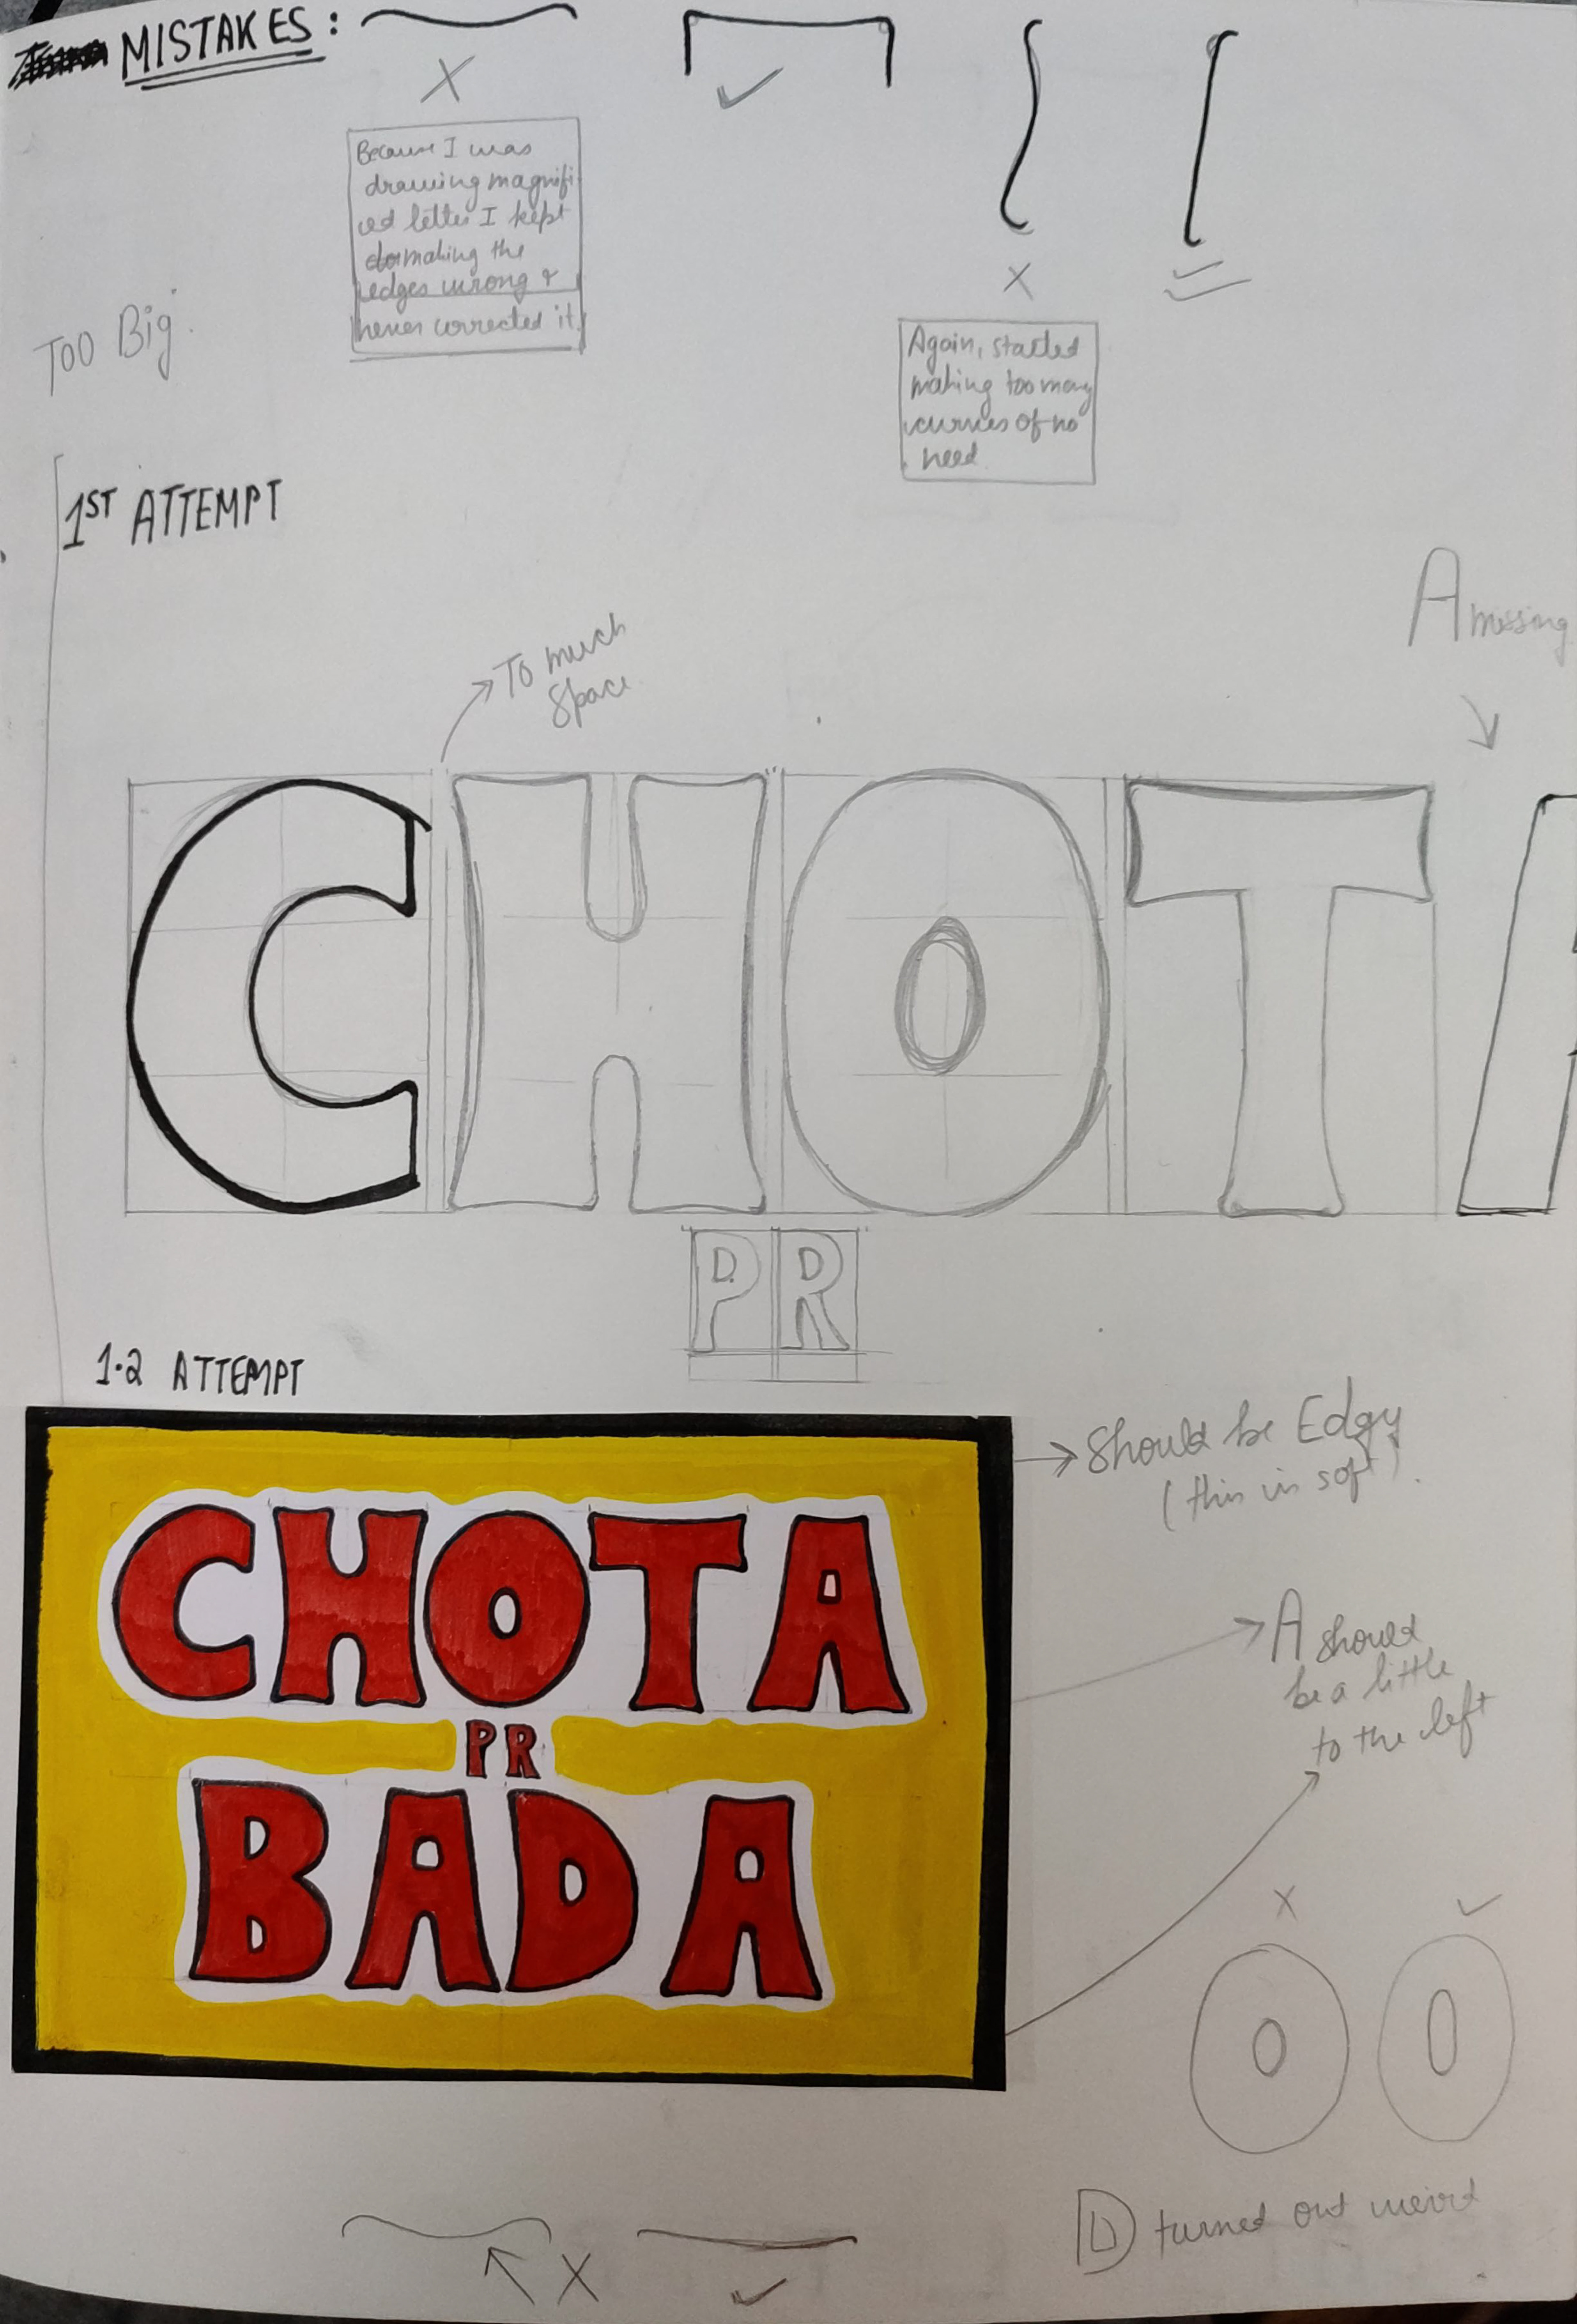 MISTAKES :
Because I was
drawing magnifi
ed letter I kept
making the
edges wrong &
never corrected it.
Again, started
making too many
curves of no
need
Too Big.
1ST ATTEMPT
To much
Space
A missing
CHOTA
PR
1.2 ATTEMPT
CHOTA
PR
BADA
Should be Edgy
(this is soft).
A should
be a little
to the left
D turned out weird